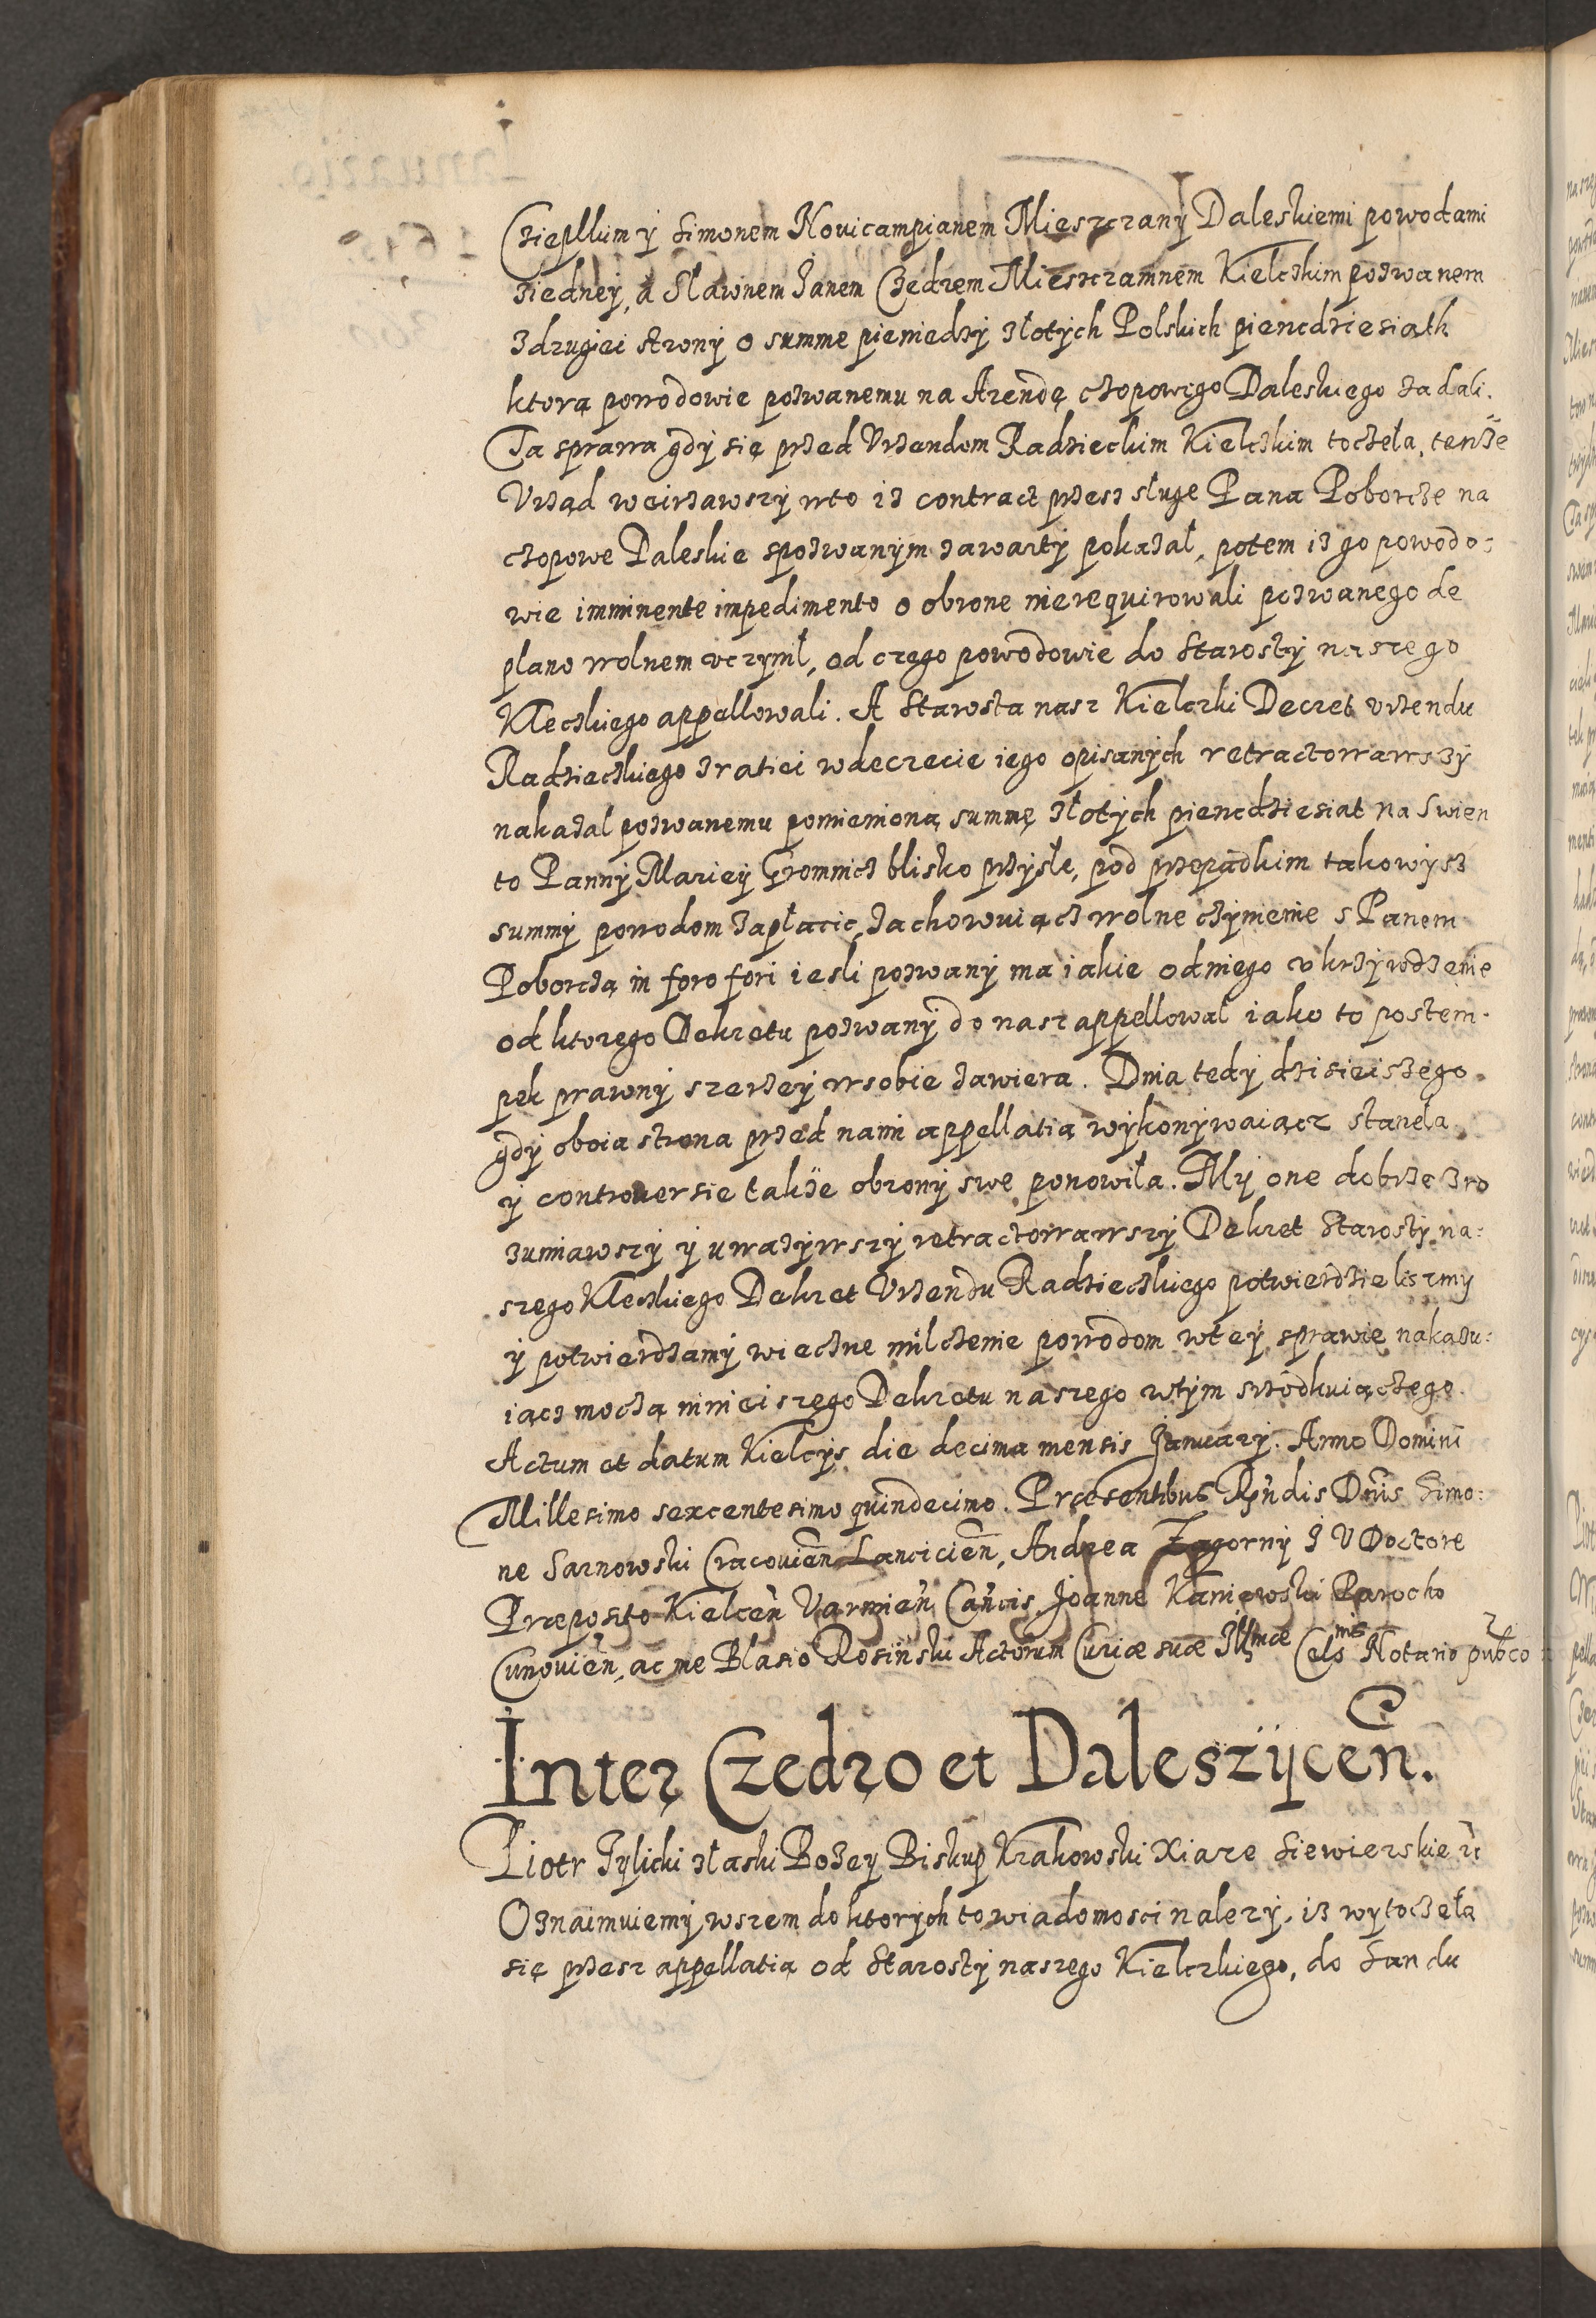 Cziepllum y Simonem Nouicampianem Mieszczany Daleskiemi powodami
ziedney, a Sławnem Janem Czedrem Mieszczaninem Kielczkim pozwanem
z drugiei strony o summe pieniedzy złotych Polskich piencdziesiath
ktorą powodowie pozwanemu na Arendę czopowego Daleskiego zadali.
Ta sprawa gdy się przed Vrzendem Radzieckim Kielczkim toczeła, tenże
Vrząd weirzawszy wto iz contract przesz sługe Pana Poborcze na
czopowe Daleskie spozwanym zawarty pokazał, potem iz go powodo:
wie imminente impedimento o obrone nierequirowali pozwanego de
plano wolnem vczynił, od czego powodowie do Starosty naszego
Kleczkiego appellowali. A Starosta nasz Kielczki Decret vrzendu
Radzieczkiego zratiei wdecrecie iego opisanych retractowawszy
nakazał pozwanemu pomienioną summę złotych piencdziesiat na Swien
to Panny Mariey Gromnicz blisko przyszłe, pod przepadkim takowysz
summy powodom zapłacic, zachowuiącz wolne czynienie s Panem
Poborczą in foro fori iesli pozwany ma iakie od niego vkrzywdzenie
od ktorego Dekretu pozwany do nasz appellował iako to postem-
pek prawny szerzey wsobie zawiera. Dnia tedy dzisieiszego
gdy oboia strona przed nami appellatią wykonywaiącz stanęła
y controuersie także obrony swe ponowiła. My one dobrze zro
zumiawszy y uwazywszy retractowawszy Dekret Starosty na:
szego Kleczkiego Dekret Vrzendu Radzieczkiego potwierdzieliszmy
y potwierdzamy wieczne milczenie powodom wtey sprawie nakazu:
iącz moczą ninieiszego Dekretu naszego wtym srzodkuiączego.
Actum et datum Kielcys die decima mensis January. Anno Domini
Millesimo sexcentesimo quindecimo. Præsentibus Rṅdis Dn̄is Simo:
ne Sarnowski Cracouien̄ Lancicien̄, Andrea Zagorny J V Doctore
Præposito Kielcen̄ Varmien̄ Can̄cis, Joanne Kaniewski Parocho
Cunouien̄, ac me Blasio Rosinski Actorum Curiæ suæ Illmæ Celsnis Notario pub̄co
Inter Czedro et Daleszÿcen̄.
Piotr Tylicki złaski Bozey Biskup Krakowski Xiaze Siewierskie rc
Oznaimuiemy wszem do ktorych to wiadomosci nalezy, iz wytoczeła
się przesz appellatią od Starosty naszego Kielczkiego, do Sandu